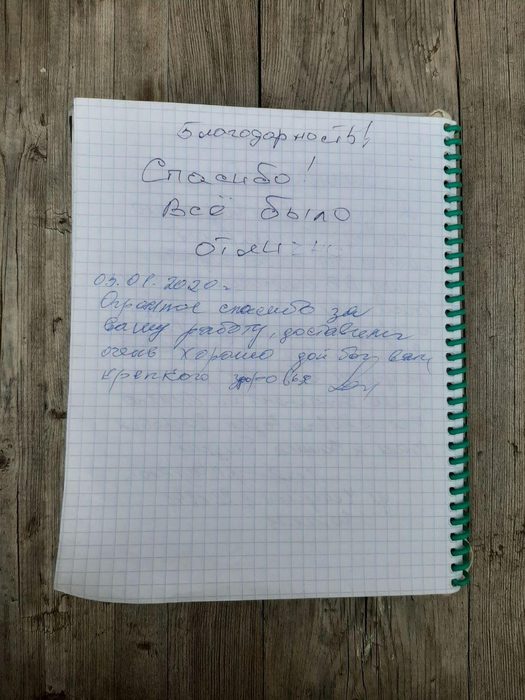 Благодарность!
Спасибо!
Всё было
03.01.2020г
Огромное спасибо за
вашу работу, доставили
очень хорошо дай бог вам
крепкого здоровья